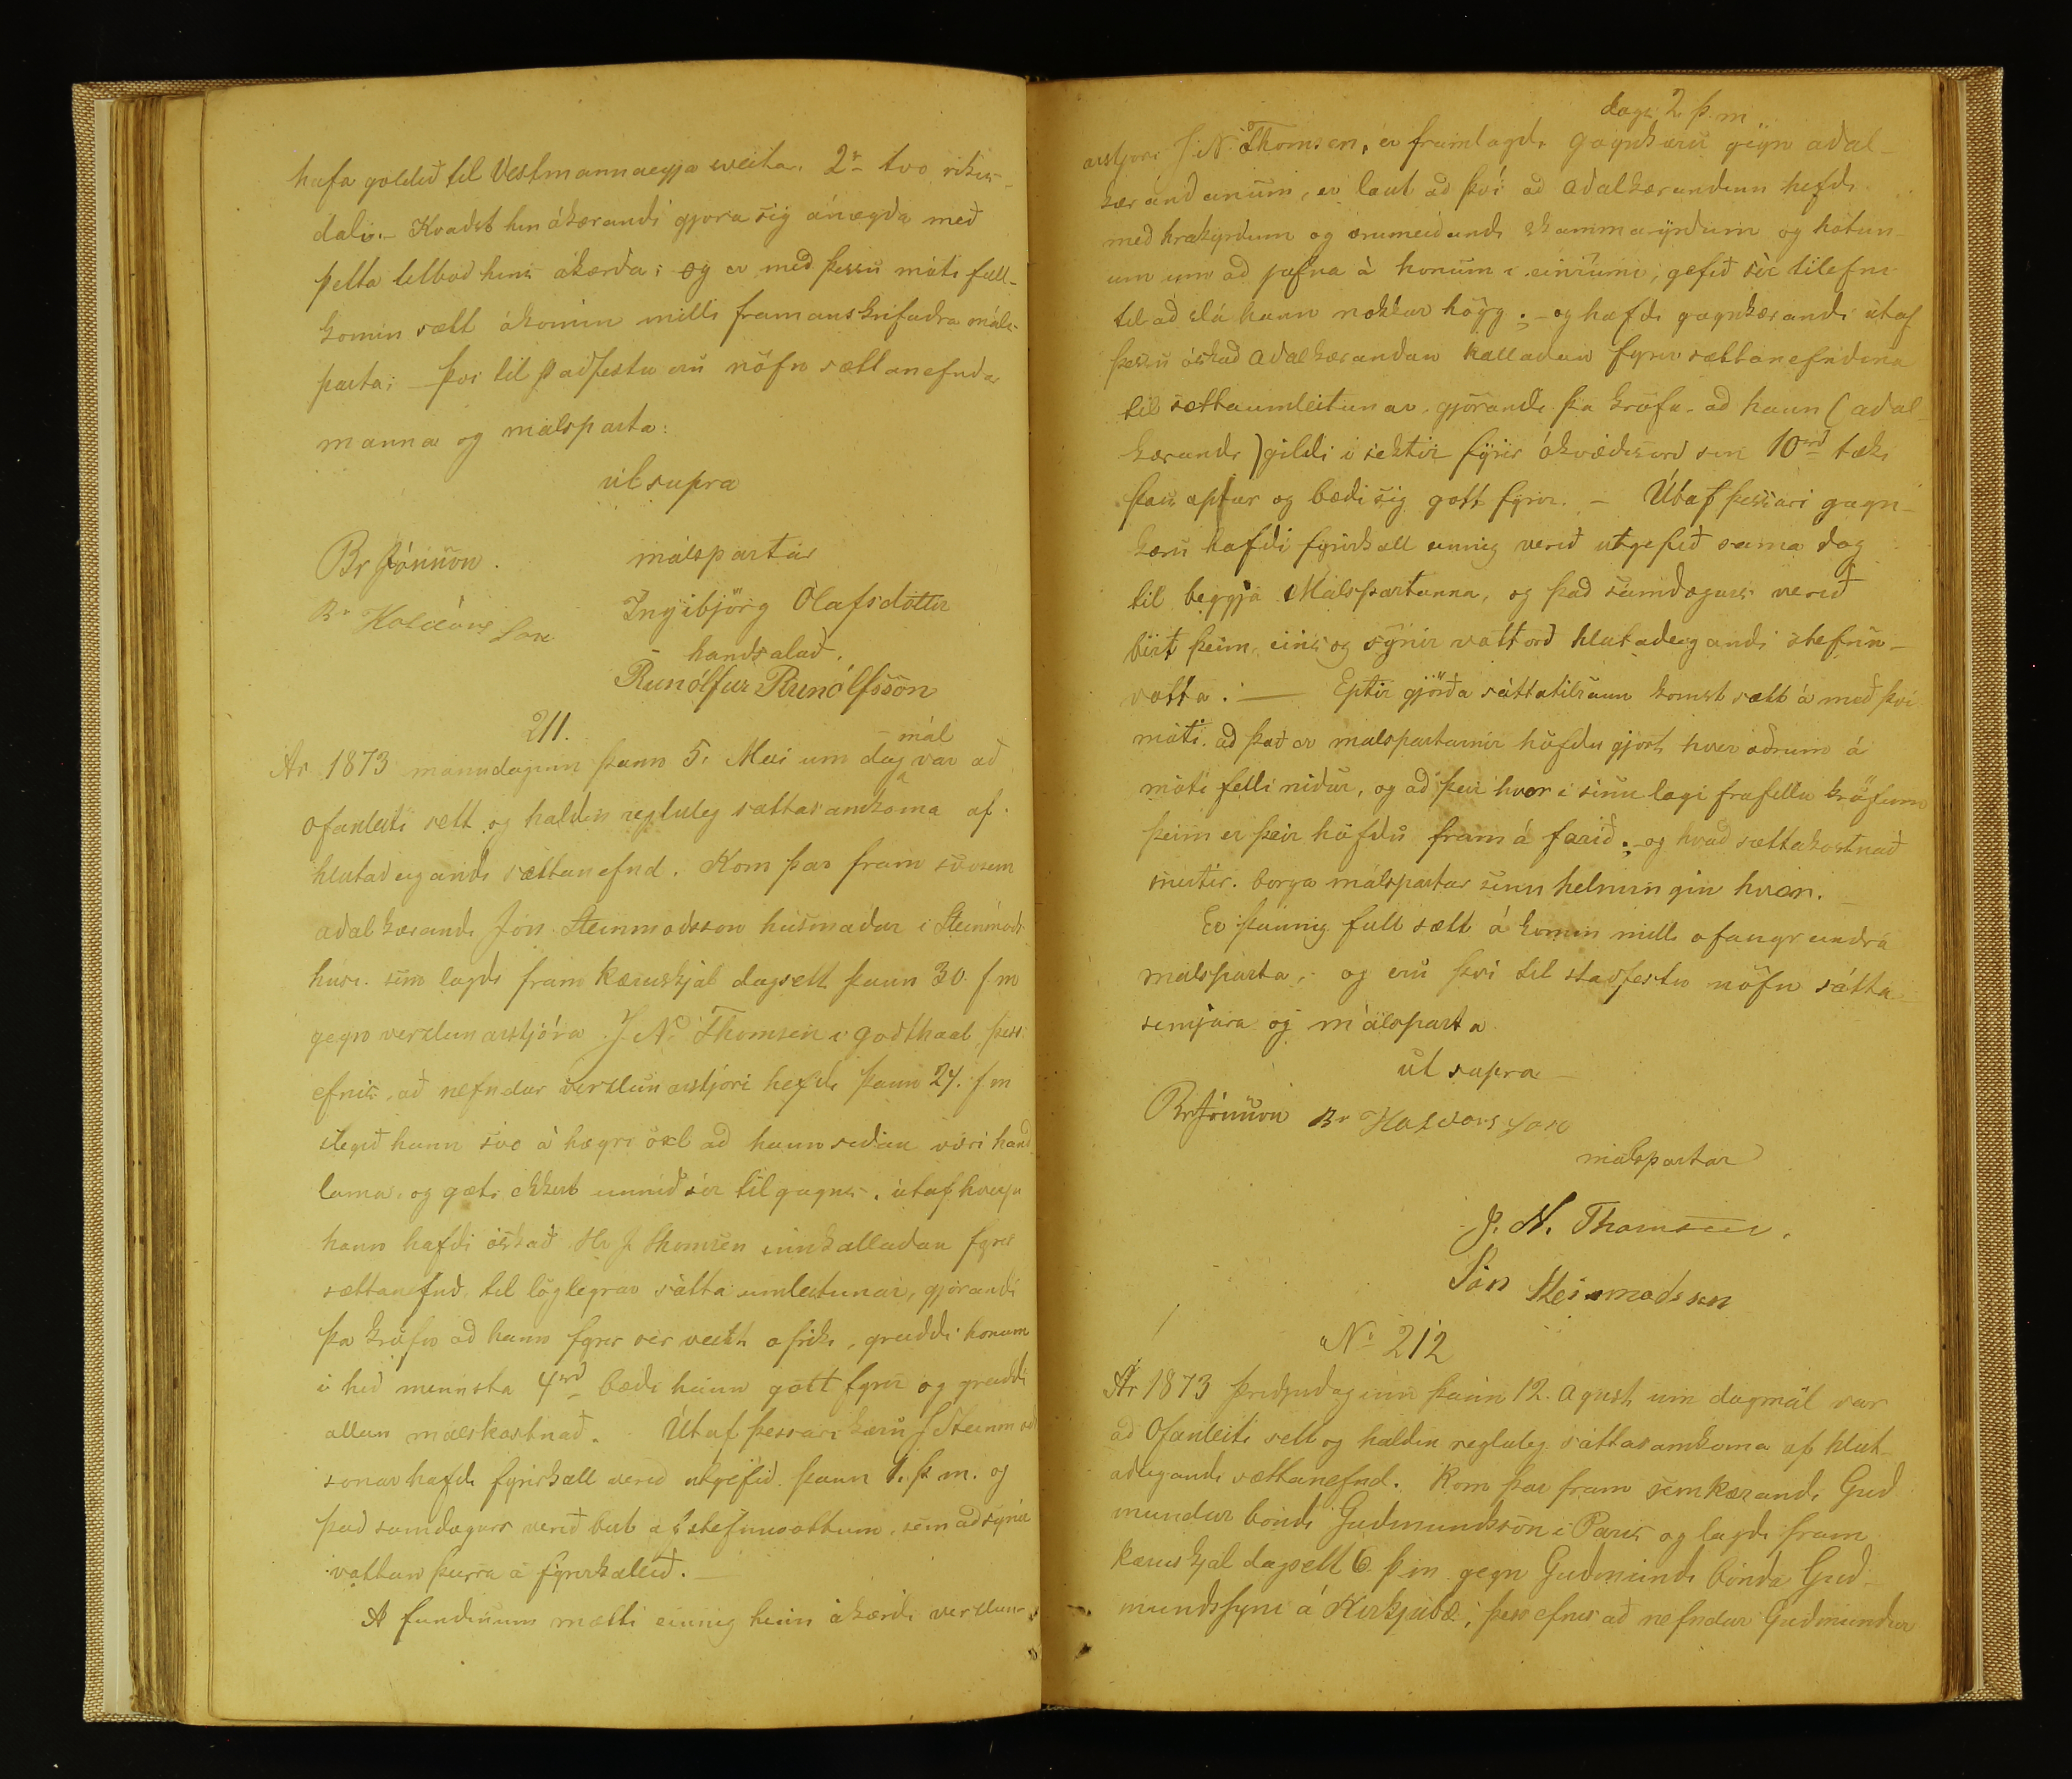 hafa goldið til Vestmannaeyja sveitar. 2r tvo rikis-
dali.- Kvaðst hin ákærandi gjora sig ánægða með
þetta tilboð hins ákærða; og er með þessu móti full-
komin sætt ákomin milli framanskrifaðra máls-
parta; - Því til staðfestu eru nöfn sættanefndar
manna og málsparta:
ut supra
Br Jónsson. málspartar
Br Haldórs Son Ingibjörg Olafsdóttir
handsalað.
Runólfur Runólfsson
211.
Ar 1873 mánudaginn þann 5. Mai um dagmál var að
ofanleiti sett og haldin regluleg sættasamkoma af
hlutaðeigandi sættanefnd. Kom þar fram svosem
aðalkærandi Jón Steinmoðsson húsmaður i Steinmóðs
húsi. sem lagði fram kæruskjal dagsett þann 30. f m
gegn verzlunarstjóra J. N. Thomsen i Godthaab, þess
efnis, að nefndur verzlunarstjóri hefði þann 27. f m
slegið hann svo á hægri öxl að hann siðan væri hand
lama, og gæti ekkert unnið sér til gagns. útaf hverju
hann hafði óskað Hr J Thomsen innkallaðan fyrir
sættanefnd, til löglegrar sátta umleitunar, gjörandi
þa kröfu að hann fyrir sér veitt ofriki, greiddi honum
i hið minnsta 4rd bæði hann gott fyrir og greiddi
allan málskostnað. Útaf þessari kæru J Steinmoðs
sonar hafði fyrirkall verið utgefið þann 1. þ. m. og
það samdægurs verið birt af stefnuvottum, sem að synir
vottun þeirra á fyrirkallið.-
A fundinum mætti einnig hinn ákærði verzlun-
dags 2 þ. m
arstjori J. N. Thomsen, er framlagði gagnkæru gegn aðal-
kærandanum, er laut að því að aðalkærandinn hefði
með hrakyrðum og ærumeiðandi skammaryrðum og hótun-
um um að jafna á honum i einrúmi, gefið sér tilefni
til að slá hann nokkur högg; - og hafði gagnkærandi útaf
þessu óskað aðalkærandan kallaðan fyrir sættanefndina
til sættaumleitunar, gjörandi þa kröfu að hann (aðal-
kærandi) gildi i sektir fyrir ákvæðisorð sin 10rd tæki
þau aptur og bæði sig gott fyrir. - Útaf þessari gagn-
kæru hafði fyrirkall einnig verið utgefið sama dag
til beggja Málspartanna, og það samdægurs verið
birt þeim, eins og sýnir vottorð hlutaðeigandi stefnu-
votta. - Eptir gjörða sáttatilraun komst sætt á með því
móti, að það er malspartarnir höfðu gjört hver öðrum á
móti félli niður, og að þeir hver i sinu lagi frafellu kröfum
þeim er þeir höfðu fram á farið; - og hvað sættakostnað
snertir. borga málspartar sinn helmingin hver.
Er þannig full sætt á komin milli ofangreindra
malsparta, og eru því til staðfestu nöfn sátta
semjara og málsparta
ut supra
Br Jónsson Br Haldórs Son
málspartar
J. N. Thomsen.
Jón Steinmoðsson
No 212
Ár 1873 þriðjudaginn þann 12. Agust um dagmál var
að Ofanleiti sett og haldin regluleg sáttasamkoma af hlut-
aðeigandi sættanefnd. Kom þar fram sem kærandi Guð
mundur bondi Guðmundsson i Paris og lagði fram
kæruskjal dagsett 6 þ m gegn Guðmundi bónda Guð-
mundssyni á Kirkjubæ, þess efnis að nefndur Guðmundur